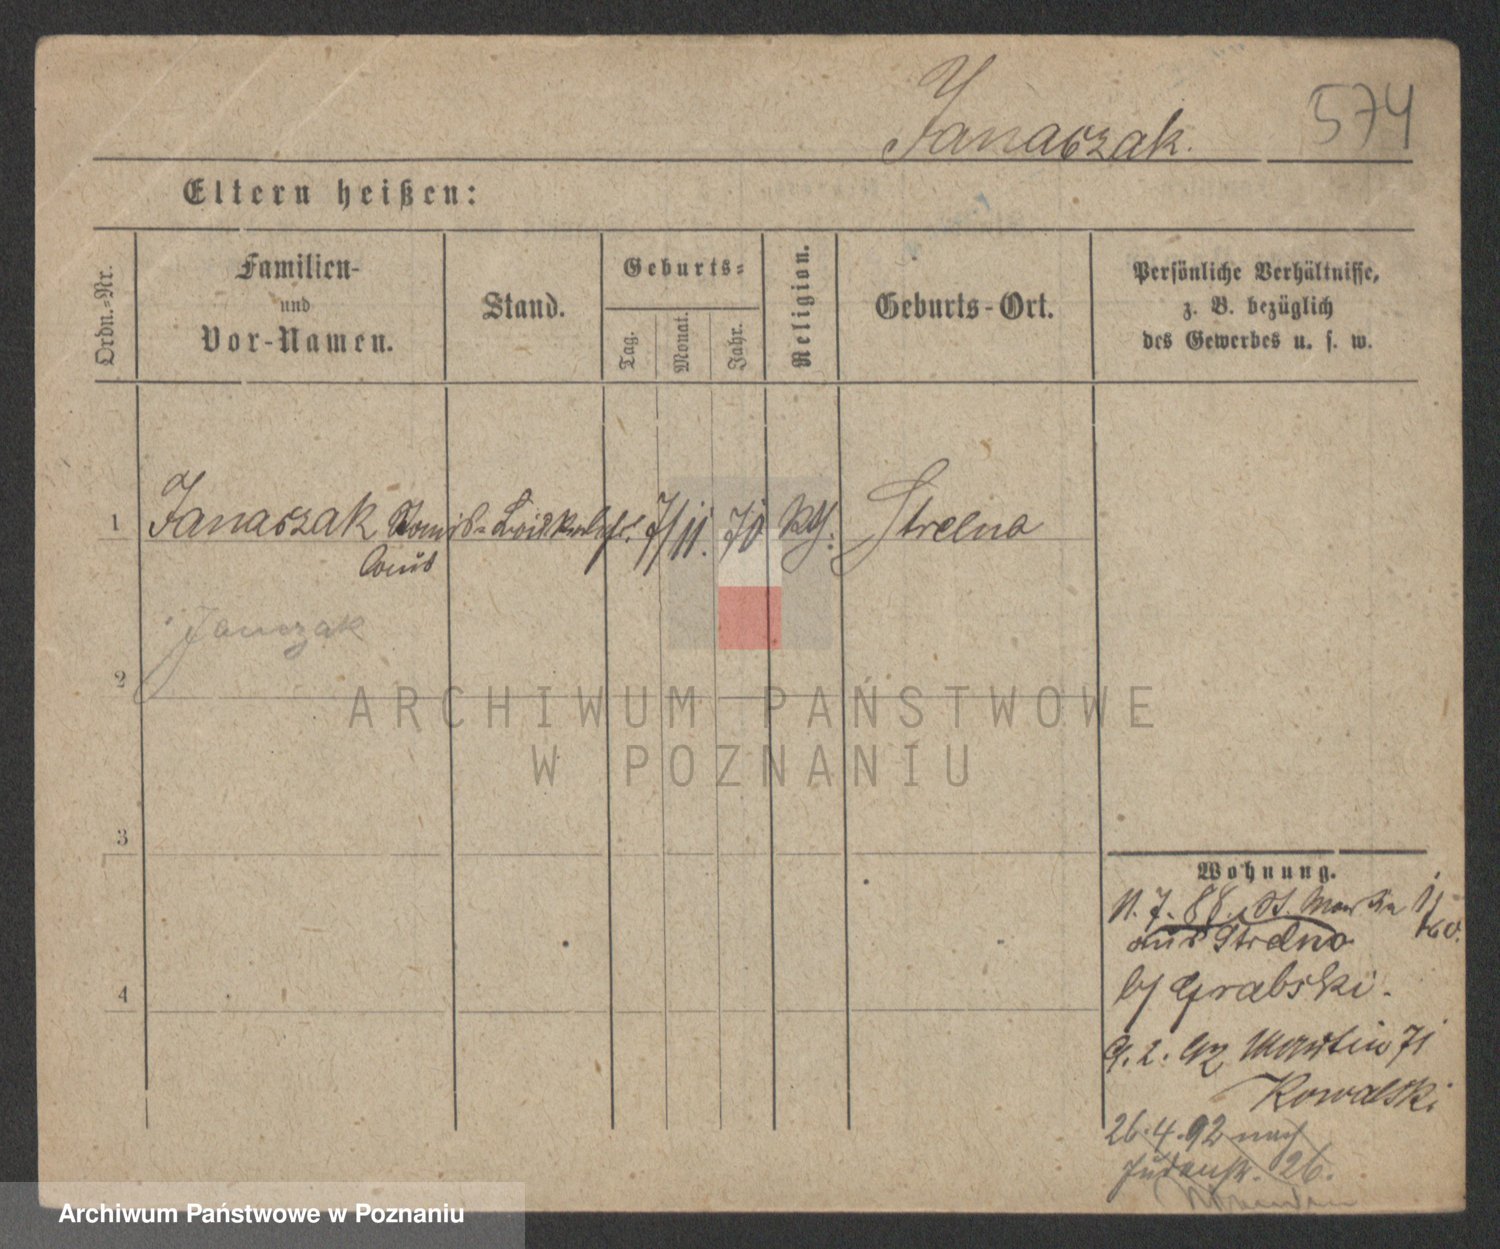 Janaszak.
574
Eltern heißen:
Ordn.-Nr.
Familien-
und
Vor-Namen.
Stand.
Geburts-
Tag.
Monat.
Jahr.
Religion.
Geburts-Ort.
Persönliche Verhältnisse,
z. B. bezüglich
des Gewerbes u. s. w.
1
Janaszak
7/11. 70
Strelno
Janczak
2
3
4
ARCHIWUM PAŃSTWOWE
W POZNANIU
Wohnung.
11. 7. 88. St. Martin
aus Strelno
b/ Grabski.
9. 2. 92 Martin 71
Kowalski
26.4.92 nach
Judenstr. 26.
Archiwum Państwowe w Poznaniu